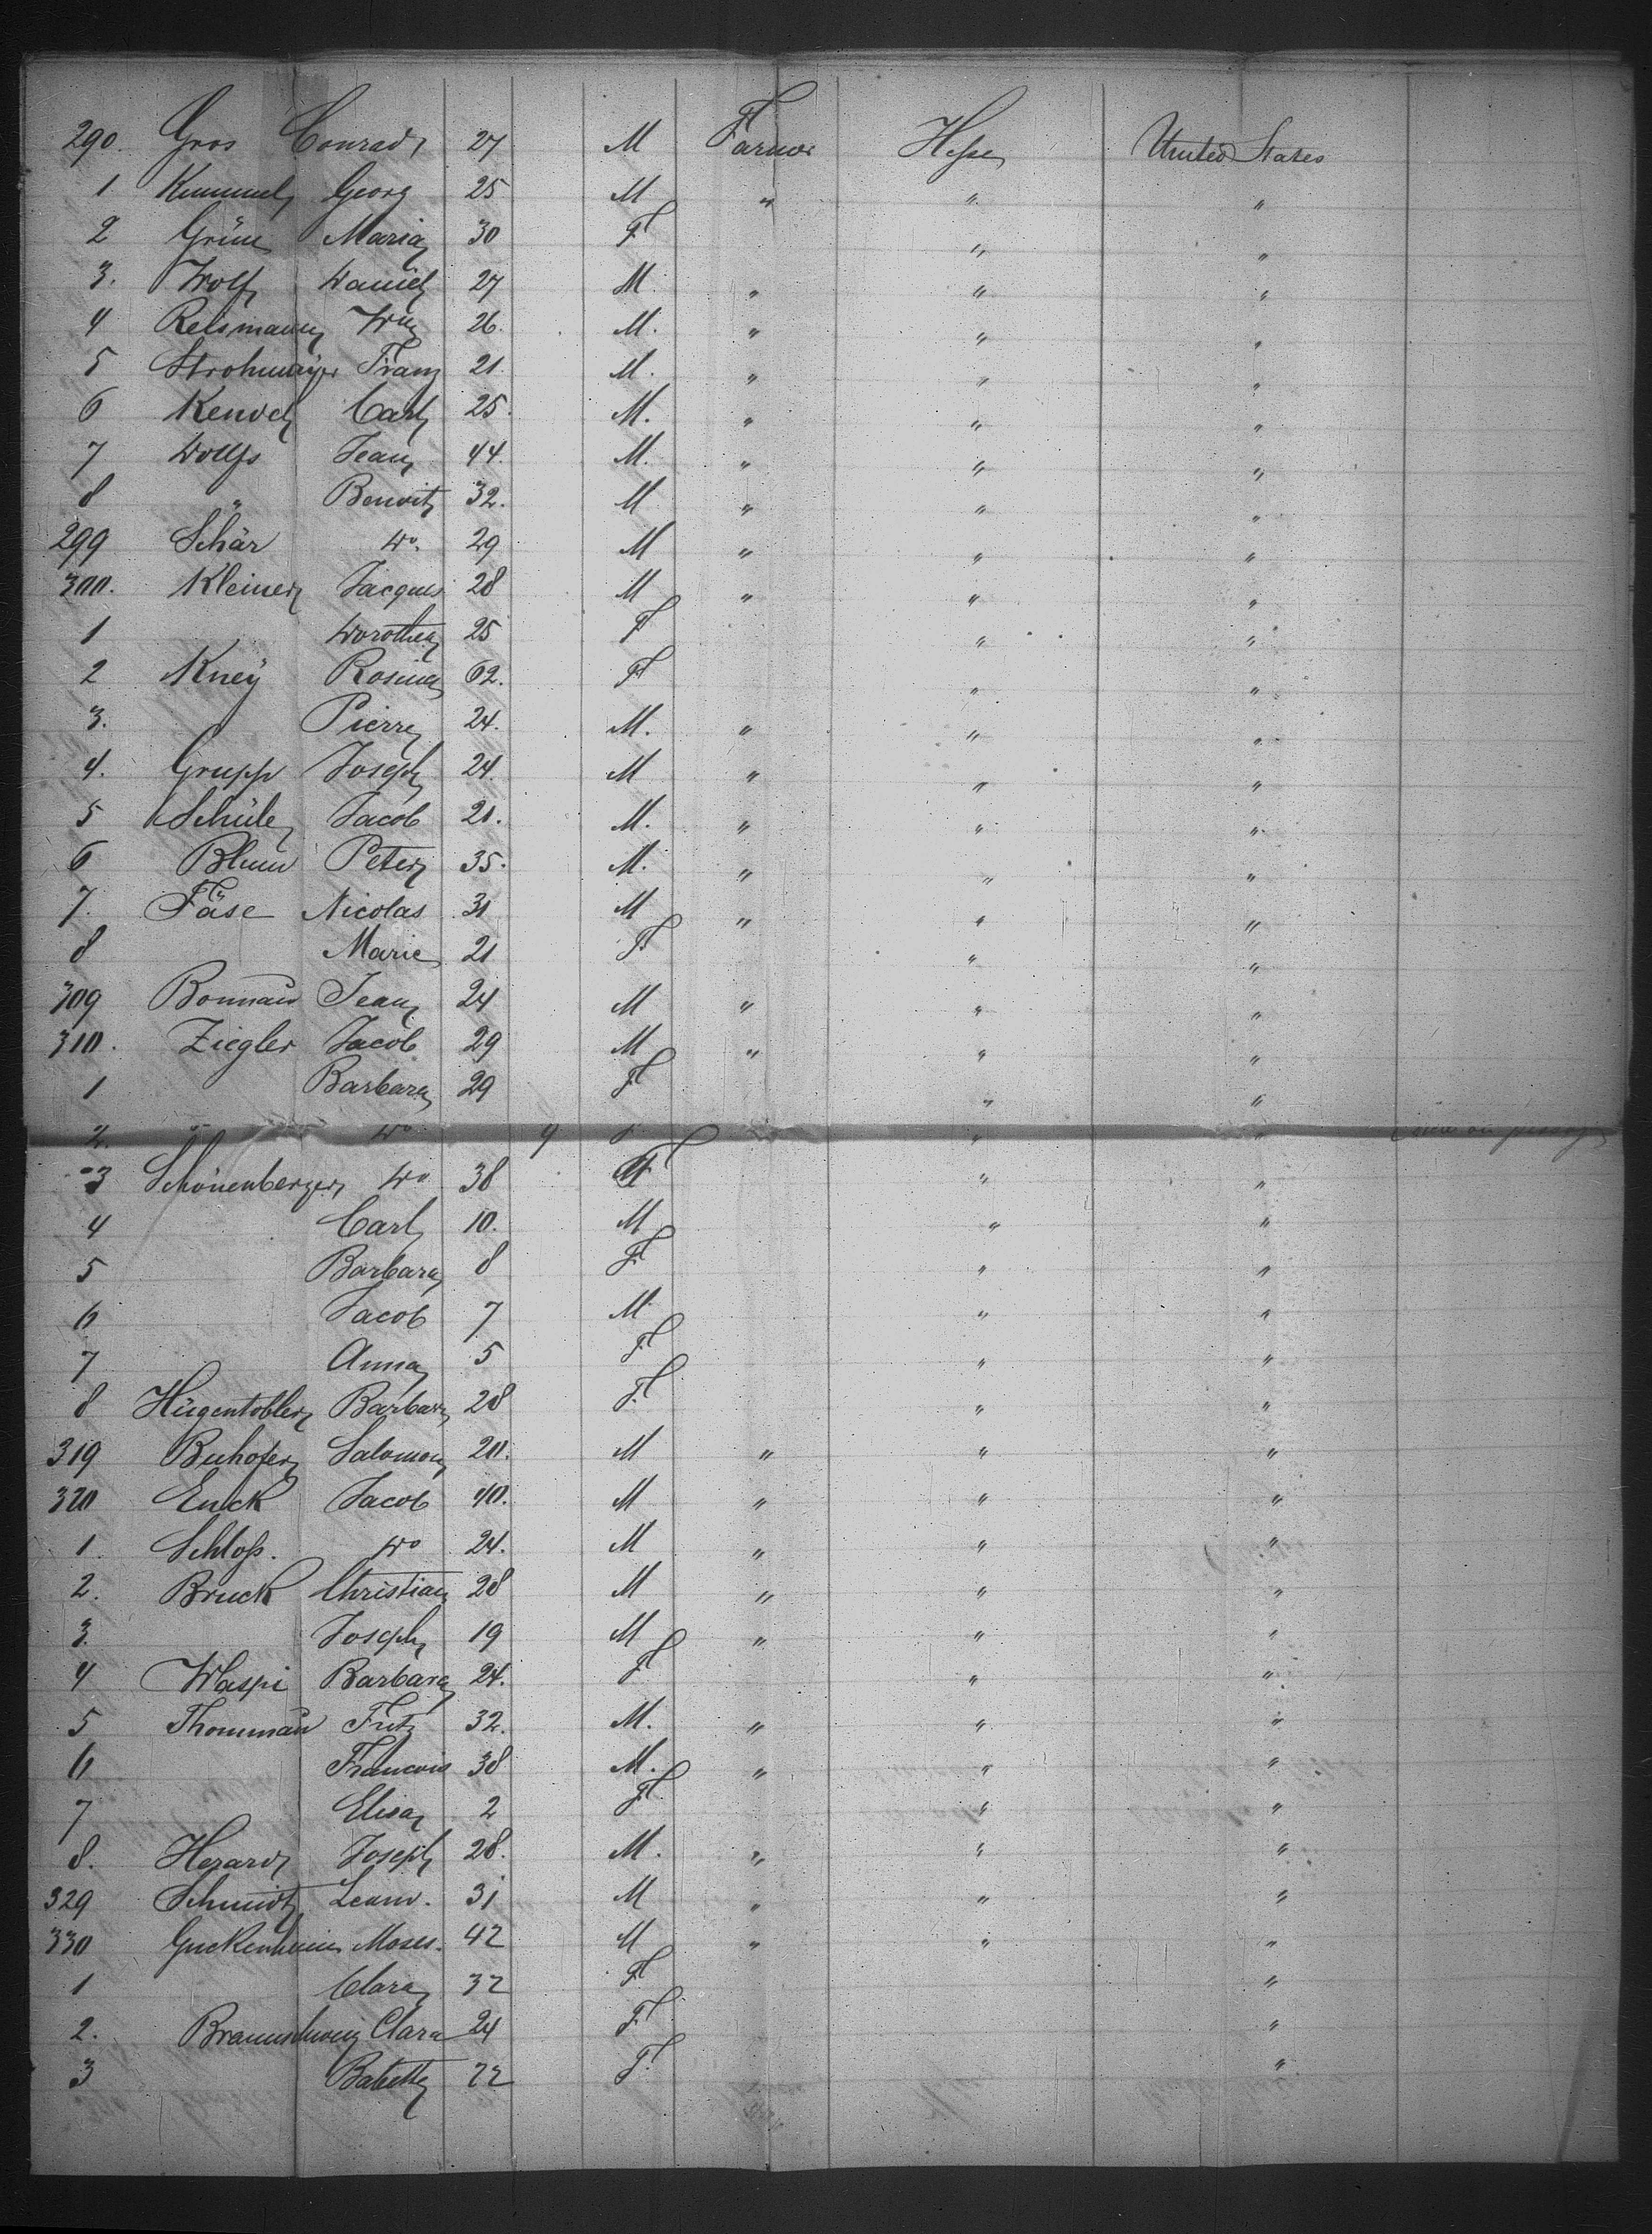 290. Gros Conrad 27 M Farmer Hesse United States
1 Kummel Georg 25 M " " "
2 Grün Maria 30 F " "
3. Wolf Daniel 27 M " " "
4 Reismann Wm 26. M. " " "
5 Strohmayer Franz 21. M. " " "
6 Kendel Carl 25. M. " " "
7 Dollfs Jean 44. M. " " "
8 " Benoit 32. M " " "
299 Schär do. 29 M " " "
300. Kleiner Jacques 28 M " " "
1 Dorothea 25 F " "
2 Kney Rosina 62. F " "
3. Pierre 24. M. " " "
4. Grupp Joseph 24. M " " "
5 Schüle Jacob 21. M. " " "
6 Blum Peter 35. M. " " "
7. Fäse Nicolas 31 M " " "
8 Marie 21 F " "
309 Bonnau Jean 24 M " " "
310. Ziegler Jacob 29 M " " "
1 Barbara 29 F " "
2. " do 9 F " "
3 Schönenberger do 38 F " "
4 Carl 10. M " "
5 Barbara 8 F " "
6 Jacob 7 M " "
7 Anna 5 F " "
8 Hügentobler Barbara 28 F. " "
319 Buhofer Salomon 20. M " " "
320 Enck Jacob 40. M " " "
1. Schloss. do 24. M " " "
2. Bruck Christian 28 M " " "
3. Joseph 19 M " " "
4 Waspi Barbara 24. F " "
5 Thommau Fritz 32. M. " " "
6 Francois 38 M. " " "
7 Elisa 2 F " "
8. Herard Joseph 28. M. " " "
329 Schmidt 31 M " " "
330 Guckenheim Moses. 42 M " " "
1 Clara 32 F "
2. Braunschweig Clara 24 F "
3 Babette 22 F. "